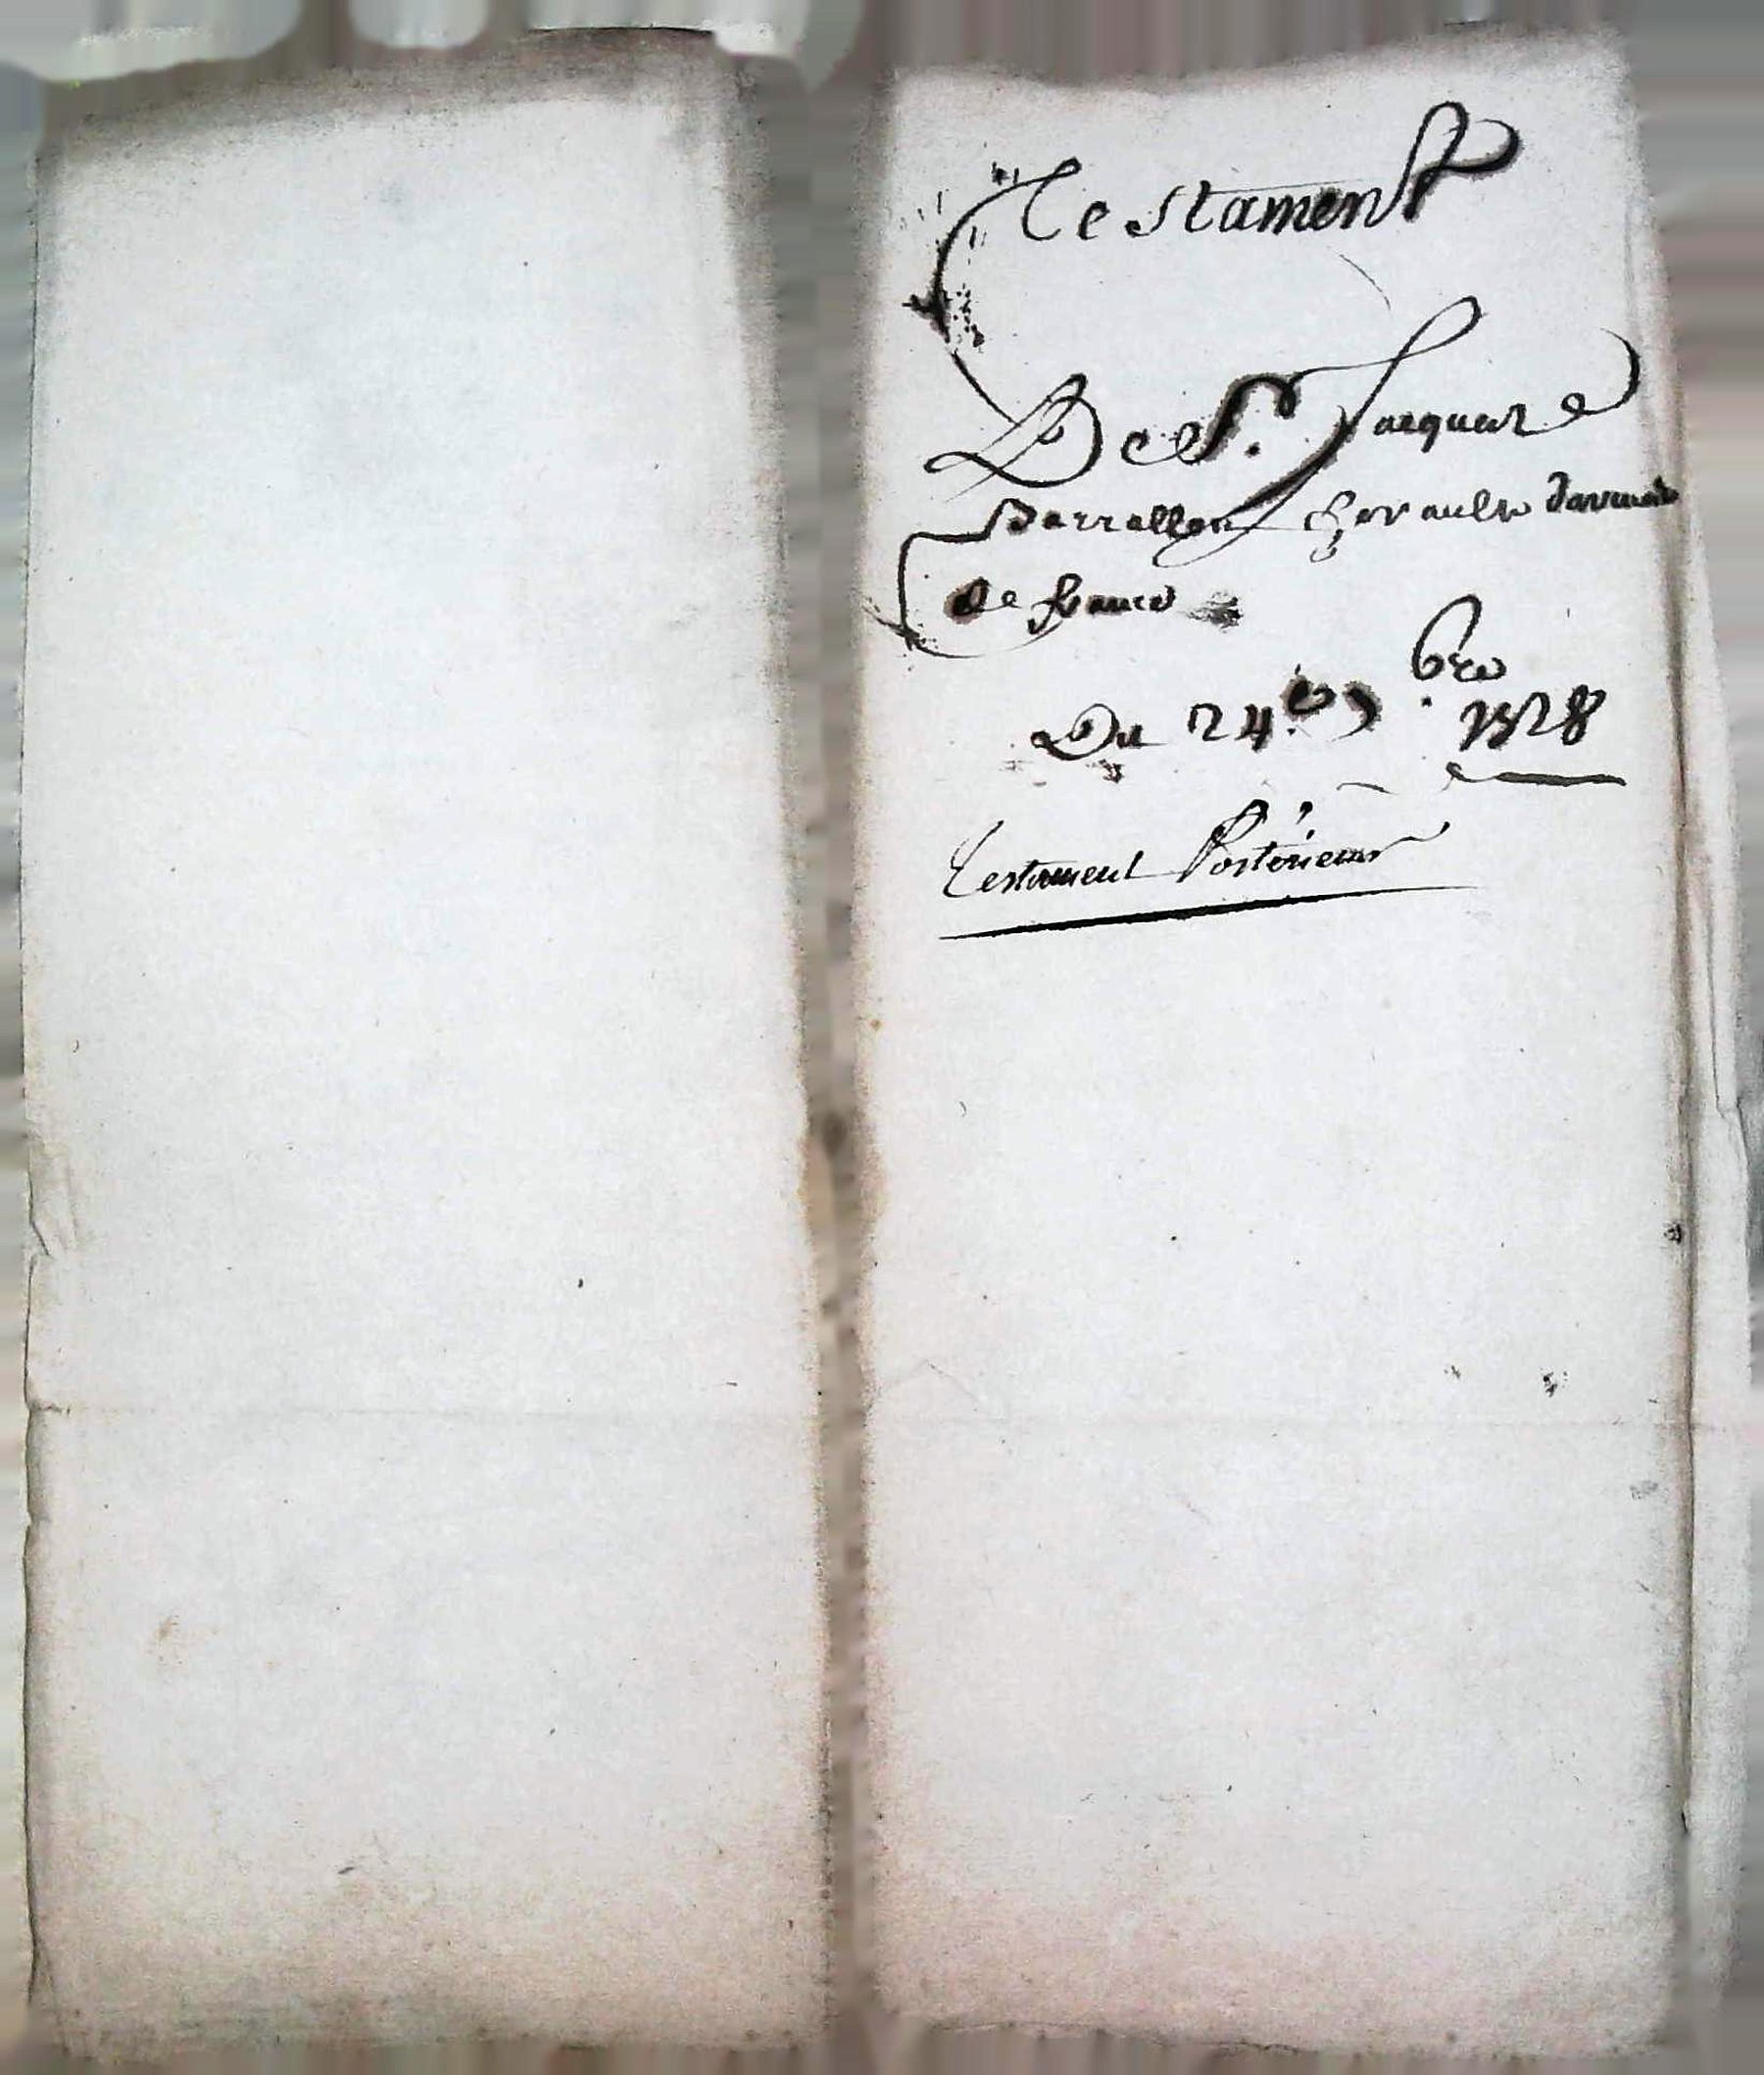 Testament
De S.r Jacques
Barrallon herault darmes
de france
Du 24.e 9bre 1728
Testament Postérieur